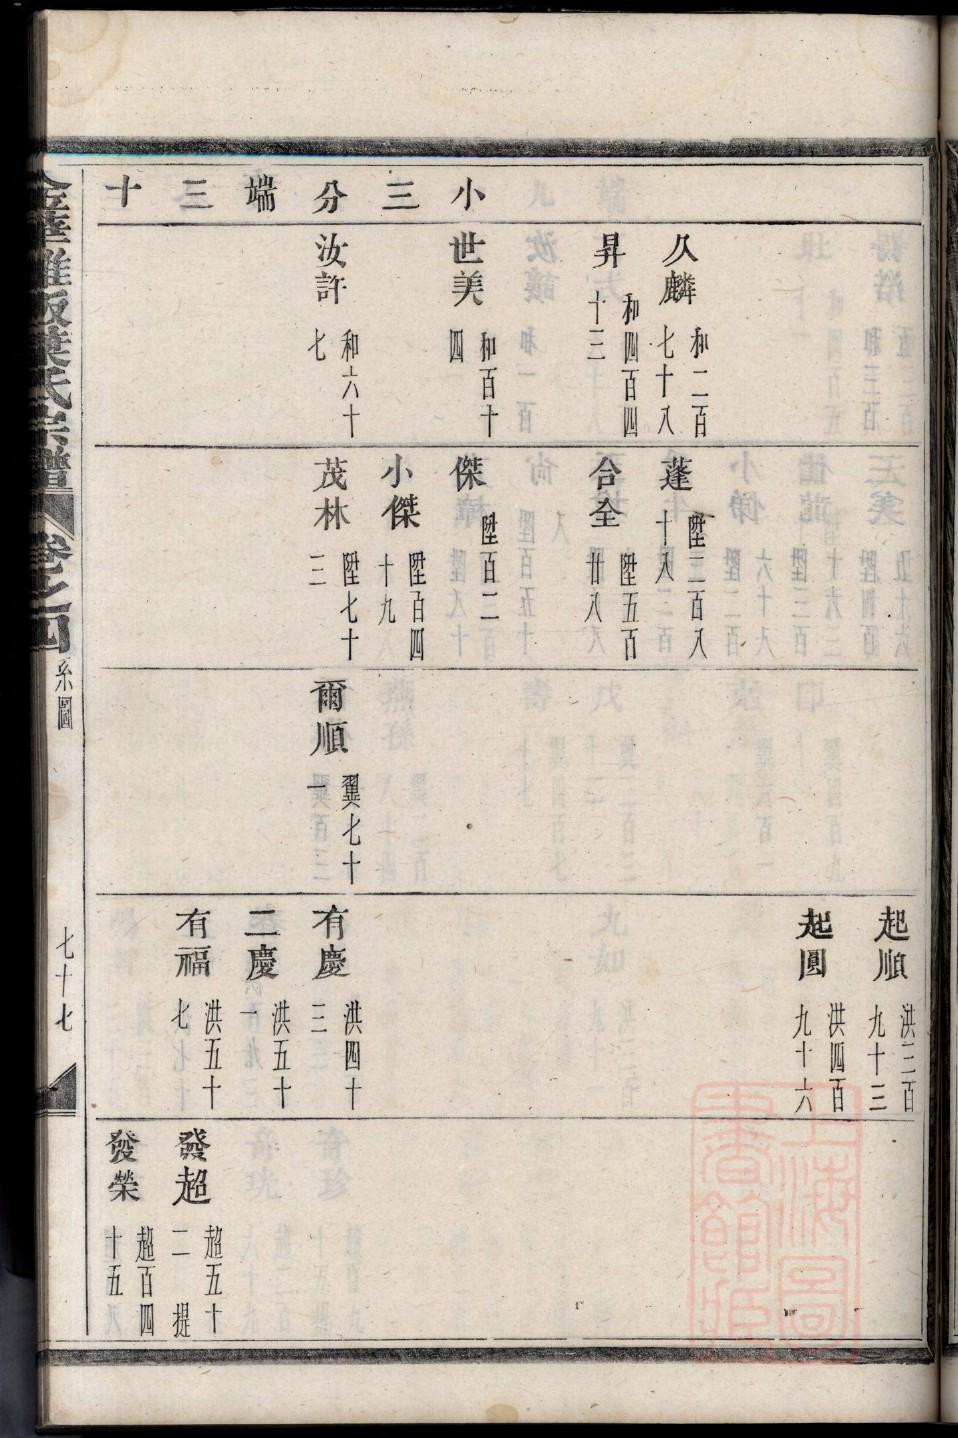 小三分端三十
久麟 和二百七十八
昇 和四百四十三
世美 和百十四
汝許 和六十七
蓬 陞二百八十八
合全 陞五百廿八
傑 陞百二
小傑 陞百四十九
茂林 陞七十三
爾順 翼七十一
起順 洪三百九十三
起圓 洪四百九十六
有慶 洪四十三
二慶 洪五十一
有福 洪五十七
發超 超五十二 提
發榮 超百四十五
葉氏宗譜
卷之四
系圖
七十七
上海圖書館藏